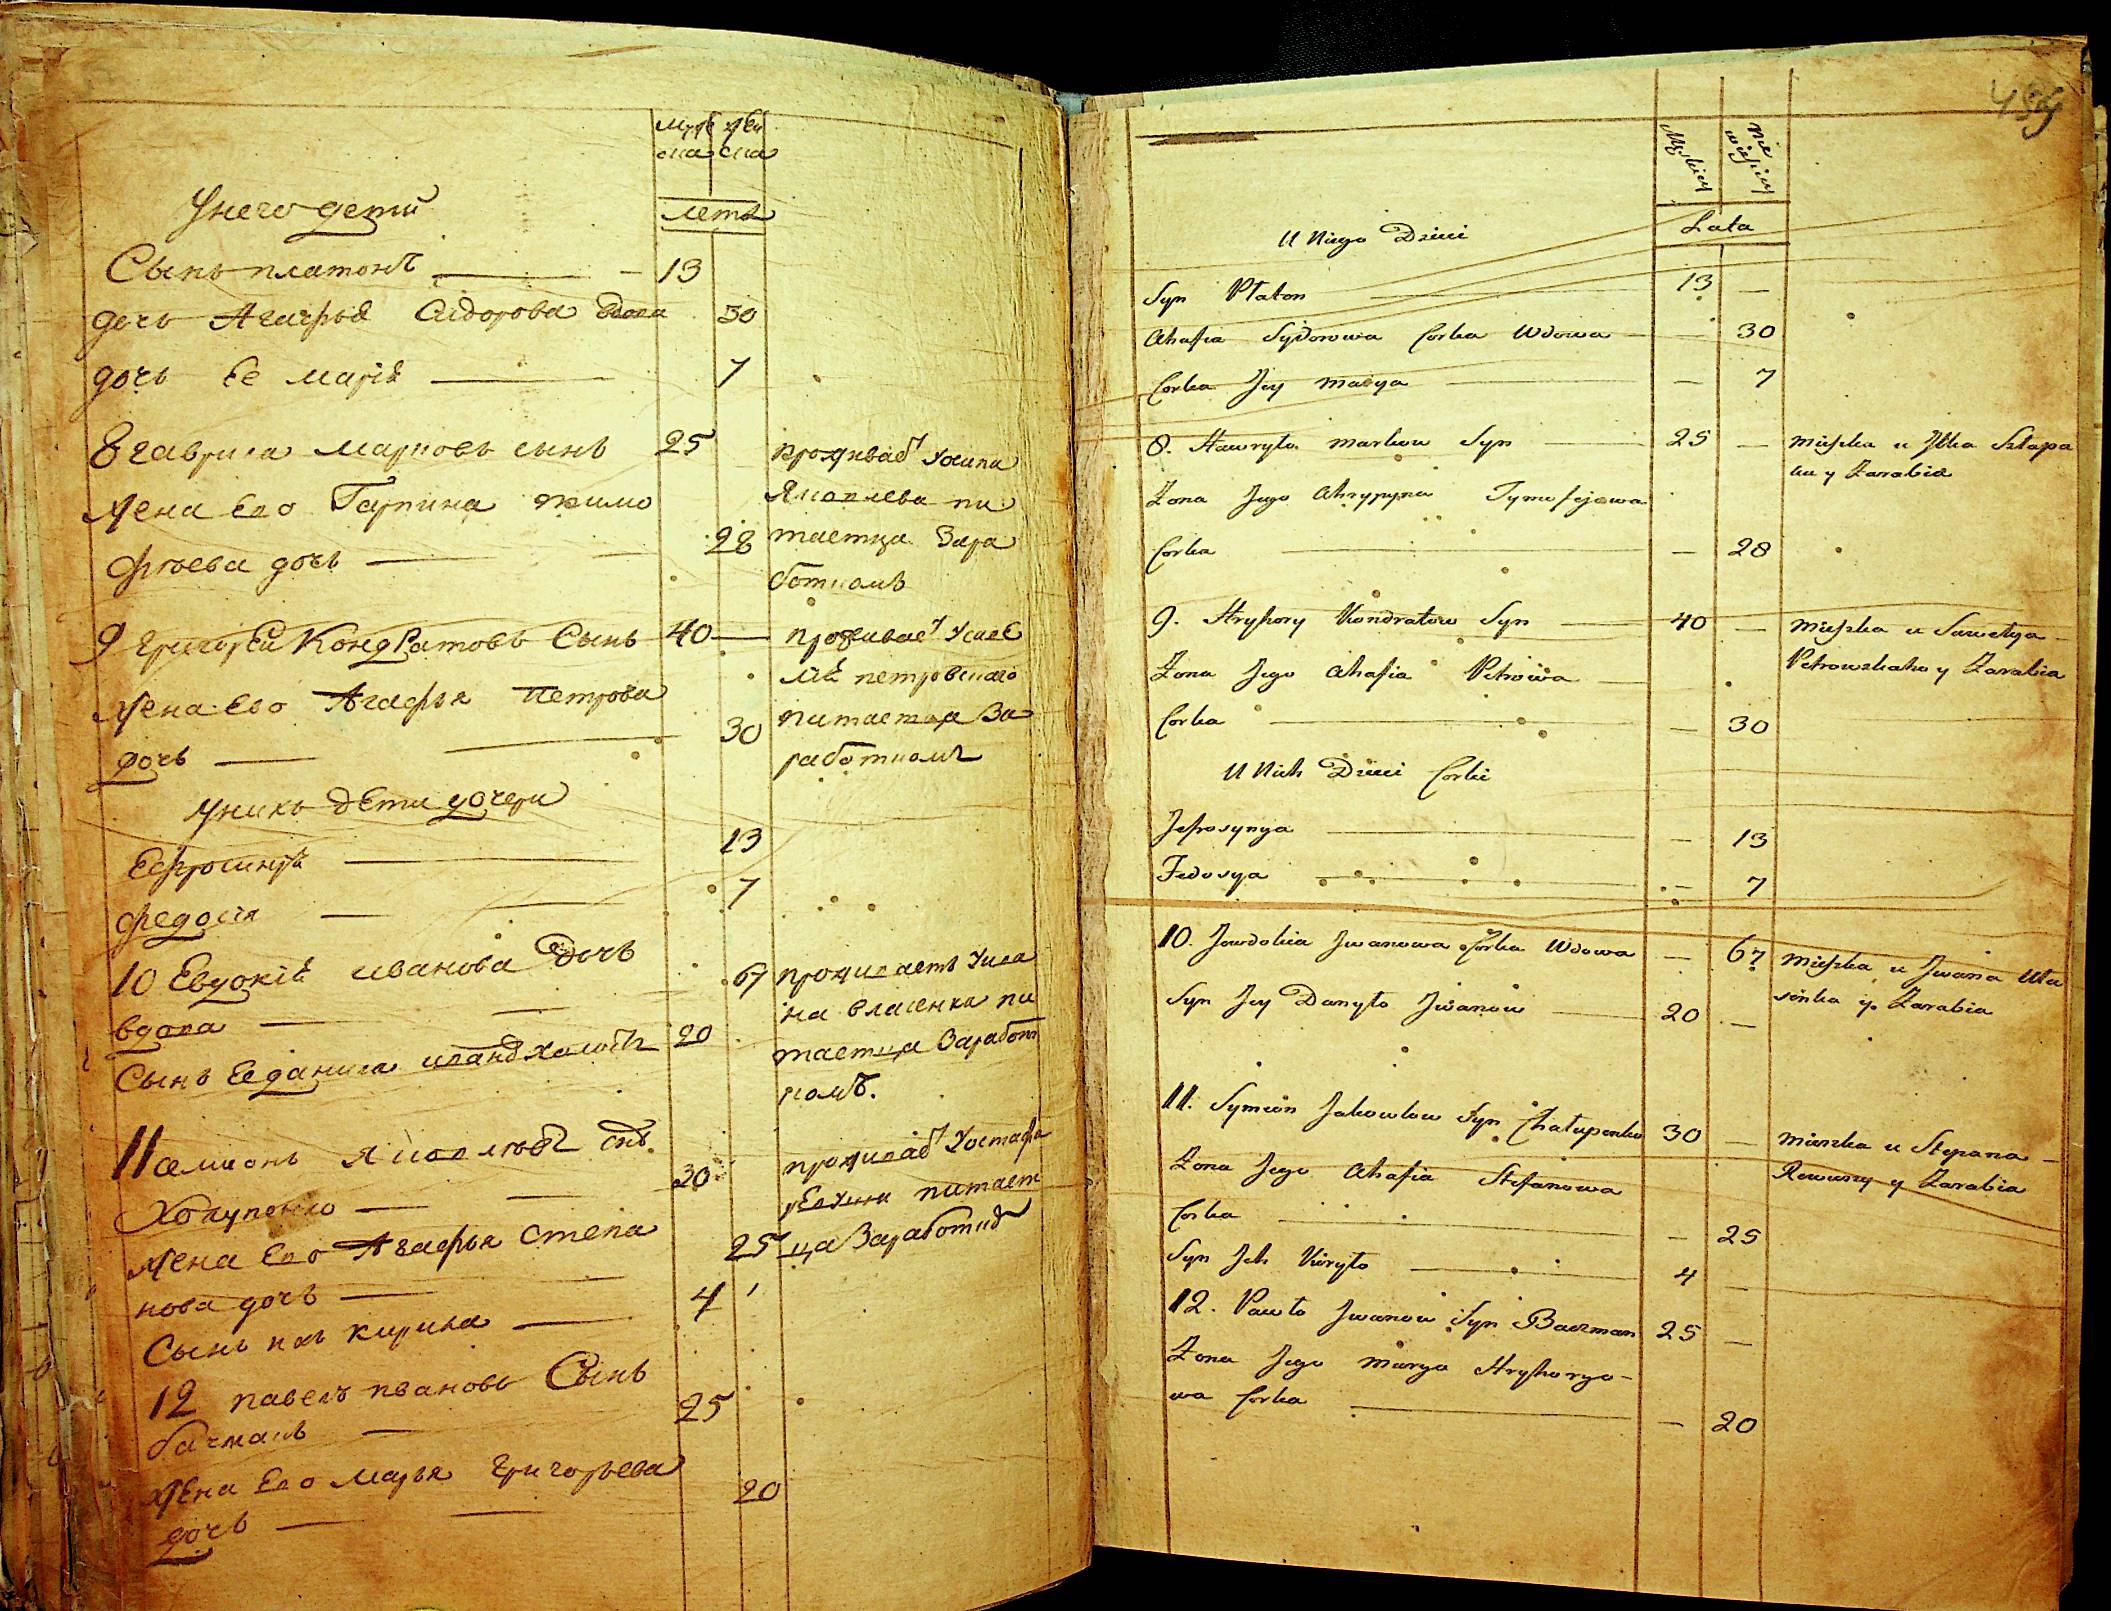 муже жен
ска ска
лета
У него дети
Сынъ платонъ 13
дочь Агафья Сидорова вдова 30
дочь Ее марія 7
8 гаврила марковъ сынъ 25
проживает У осипа
Жена Ево Гарпина тимо
Яковлева пи
фѣева дочь 28
таетца Зара
боткомъ
9 григорей Кондратовъ Сынъ 40
проживает У саве
Жена Ево Агафья петрова
лія петровскаго
дочь 30
питаетца За
работкомъ
У нихъ дети дочери
Ефросинія 13
федосія 7
10 Евдокія иванова Дочь
67 проживаетъ У ива
вдова
на власенка пи
Сынъ Ее данила 20
таетца Заработ
комъ.
11 семионъ яковлевъ снъ
проживает
Холупенко 30
питает
Жена Ево Агафья степа
ца
нова дочь 25
Сынъ ихъ кирила 4
12 павелъ ивановъ Сынъ
бачманъ 25
Жена Ево марья григорьева
дочь 20
489
Męskiey Niewieściey
Lata
U Niego Dzieci
Syn Platon 13 —
Ahafia Sydorowa Corka Wdowa — 30
Corka Jey Marya — 7
8. Hawryło Markow Syn 25 — Mieszka u Jśka Szłapa
ku y Zarabia
Zona Jego Ahrypyna Tymofejowa
Corka — 28
9. Hryhory Kondratow Syn 40 — Mieszka u Sawelya
Petrowskaho y Zarabia
Zona Jego Ahafia Petrowa
Corka — 30
U Nich Dzieci Corki
Jefrosynya — 13
Fedosya — 7
10. Jewdokia Jwanowa Corka Wdowa — 67 Mieszka u Jwana Wła
senka y Zarabia
Syn Jey Danyło Jwanow 20 —
11. Symion Jakowlow Syn Chałupenko 30 — Mieszka u Stepana
y Zarabia
Zona Jego Ahafia Stefanowa
Corka — 25
Syn Jch Kiryło 4 —
12. Pawło Jwanow Syn Baczman 25 —
Zona Jego Marya Hryhoryo-
wa Corka — 20